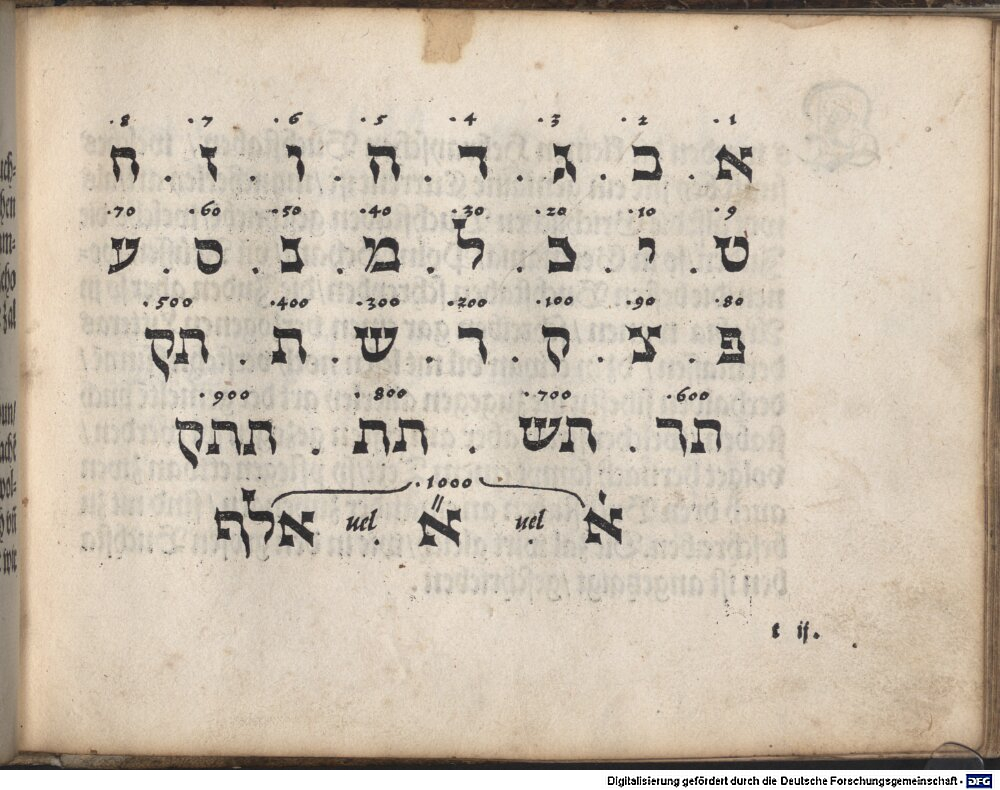 ·1 ·2 ·3 ·4 ·5 ·6 ·7 ·8
א . ב . ג . ד . ה . ו . ז . ח
·9 ·10 ·20 ·30 ·40 ·50 ·60 ·70
ט . י . כ . ל . מ . נ . ס . ע
·80 ·90 ·100 ·200 ·300 ·400 ·500
פ . צ . ק . ר . ש . ת . תק
·600 ·700 ·800 ·900
תר . תש . תת . תתק
·1000
א uel א uel אלף
t ij.
Digitalisierung gefördert durch die Deutsche Forschungsgemeinschaft - DFG